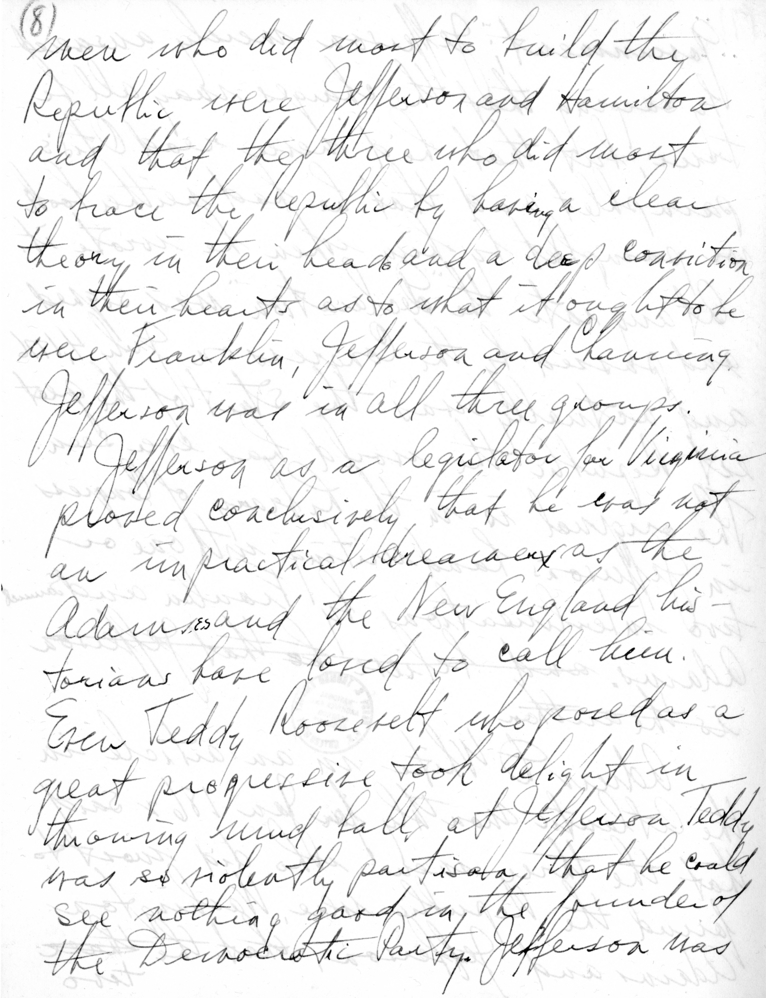 (8)
men who did most to build the
Republic were Jefferson and Hamilton
and that the three who did most
to brace the Republic by having a clear
theory in their heads and a deep conviction
in their hearts as to what it ought to be
were Franklin, Jefferson and Channing
Jefferson was in all three groups.
Jefferson as a legislator for Virginia
proved conclusively that he was not
an impractical dreamer as the
Adamses and the New England his-
torians have loved to call him.
Even Teddy Roosevelt who posed as a
great progressive took delight in
throwing mud balls at Jefferson. Teddy
was so violently partisan that he could
see nothing good in the founder of
the Democratic Party. Jefferson was